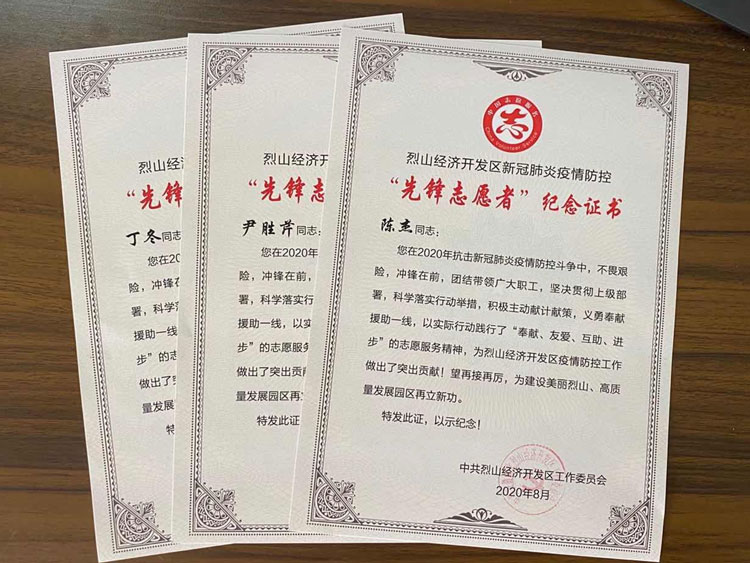 烈山经济
“先锋
丁冬同志：
您在20
险，冲锋在
署，科学落
援助一线，
步”的志愿
做出了突出
量发展园区
特发
烈山经济开
“先锋志
尹胜芹同志：
您在2020年
险，冲锋在前，
署，科学落实行
援助一线，以实
步”的志愿服务
做出了突出贡献
量发展园区再立
特发此证
中国志愿服务
志
China Volunteer Service
烈山经济开发区新冠肺炎疫情防控
“先锋志愿者”纪念证书
陈杰同志：
您在2020年抗击新冠肺炎疫情防控斗争中，不畏艰
险，冲锋在前，团结带领广大职工，坚决贯彻上级部
署，科学落实行动举措，积极主动献计献策，义勇奉献
援助一线，以实际行动践行了“奉献、友爱、互助、进
步”的志愿服务精神，为烈山经济开发区疫情防控工作
做出了突出贡献！望再接再厉，为建设美丽烈山、高质
量发展园区再立新功。
特发此证，以示纪念！
中共烈山经济开发区工作委员会
2020年8月